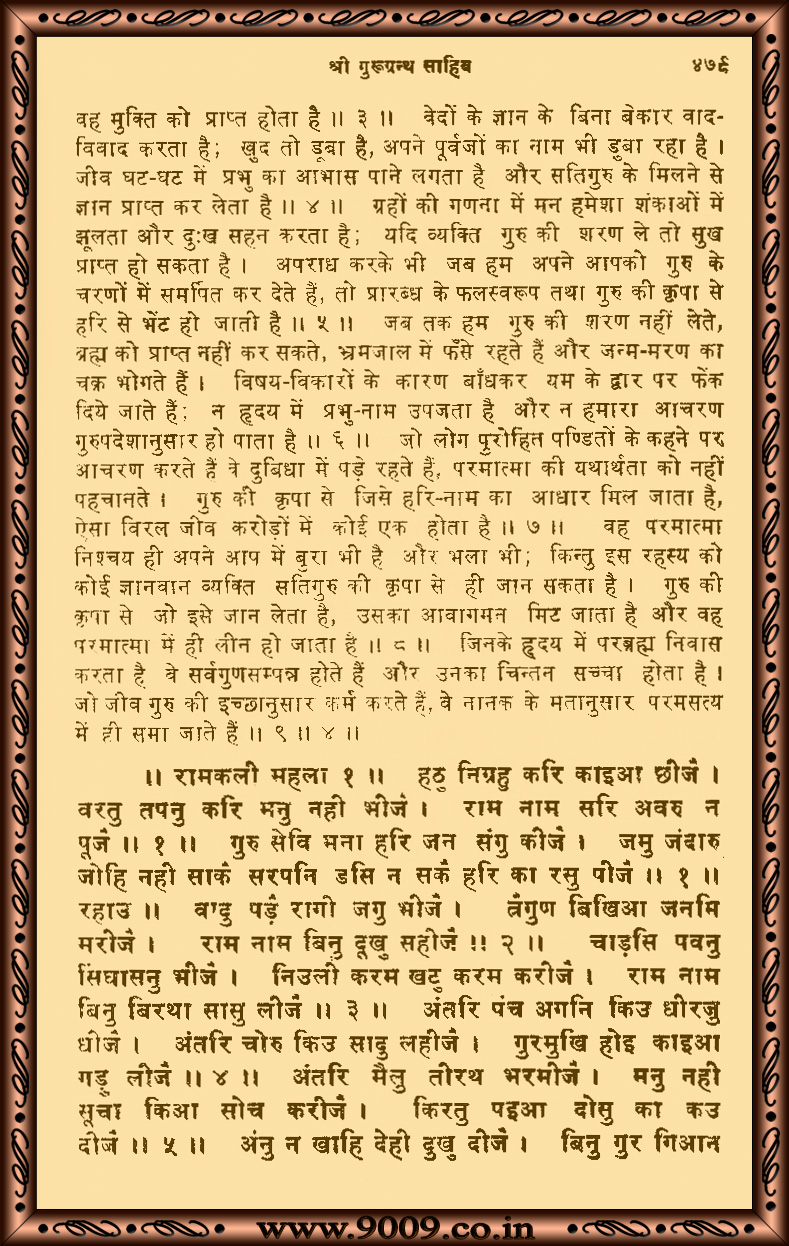 श्री गुरूग्रन्थ साहिब ४७९
वह मुक्ति को प्राप्त होता है ॥ ३ ॥ वेदों के ज्ञान के बिना बेकार वाद-
विवाद करता है; खुद तो डूबा है, अपने पूर्वजों का नाम भी डुबा रहा है ।
जीव घट-घट में प्रभु का आभास पाने लगता है और सतिगुरु के मिलने से
ज्ञान प्राप्त कर लेता है ॥ ४ ॥ ग्रहों की गणना में मन हमेशा शंकाओं में
झूलता और दुःख सहन करता है; यदि व्यक्ति गुरु की शरण ले तो सुख
प्राप्त हो सकता है । अपराध करके भी जब हम अपने आपको गुरु के
चरणों में समर्पित कर देते हैं, तो प्रारब्ध के फलस्वरूप तथा गुरु की कृपा से
हरि से भेंट हो जाती है ॥ ५ ॥ जब तक हम गुरु की शरण नहीं लेते,
ब्रह्म को प्राप्त नहीं कर सकते, भ्रमजाल में फँसे रहते हैं और जन्म-मरण का
चक्र भोगते हैं । विषय-विकारों के कारण बाँधकर यम के द्वार पर फेंक
दिये जाते हैं; न हृदय में प्रभु-नाम उपजता है और न हमारा आचरण
गुरुपदेशानुसार हो पाता है ॥ ६ ॥ जो लोग पुरोहित पण्डितों के कहने पर
आचरण करते हैं वे दुबिधा में पड़े रहते हैं, परमात्मा की यथार्थता को नहीं
पहचानते । गुरु की कृपा से जिसे हरि-नाम का आधार मिल जाता है,
ऐसा विरल जीव करोड़ों में कोई एक होता है ॥ ७ ॥ वह परमात्मा
निश्चय ही अपने आप में बुरा भी है और भला भी; किन्तु इस रहस्य को
कोई ज्ञानवान व्यक्ति सतिगुरु की कृपा से ही जान सकता है । गुरु की
कृपा से जो इसे जान लेता है, उसका आवागमन मिट जाता है और वह
परमात्मा में ही लीन हो जाता है ॥ ८ ॥ जिनके हृदय में परब्रह्म निवास
करता है वे सर्वगुणसम्पन्न होते हैं और उनका चिन्तन सच्चा होता है ।
जो जीव गुरु की इच्छानुसार कर्म करते हैं, वे नानक के मतानुसार परमसत्य
में ही समा जाते हैं ॥ ९ ॥ ४ ॥
॥ रामकली महला १ ॥ हठु निग्रहु करि काइआ छीजै ।
वरतु तपनु करि मनु नही भीजै । राम नाम सरि अवरु न
पूजै ॥ १ ॥ गुरु सेवि मना हरि जन संगु कीजै । जमु जंदारु
जोहि नही साकै सरपनि डसि न सकै हरि का रसु पीजै ॥ १ ॥
रहाउ ॥ वादु पड़ै रागी जगु भीजै । त्रैगुण बिखिआ जनमि
मरीजै । राम नाम बिनु दूखु सहीजै ॥ २ ॥ चाड़सि पवनु
सिंघासनु भीजै । निउली करम खटु करम करीजै । राम नाम
बिनु बिरथा सासु लीजै ॥ ३ ॥ अंतरि पंच अगनि किउ धीरजु
धीजै । अंतरि चोरु किउ सादु लहीजै । गुरमुखि होइ काइआ
गड़ु लीजै ॥ ४ ॥ अंतरि मैलु तीरथ भरमीजै । मनु नही
सूचा किआ सोच करीजै । किरतु पइआ दोसु का कउ
दीजै ॥ ५ ॥ अंनु न खाहि देही दुखु दीजै । बिनु गुर गिआन
www.9009.co.in